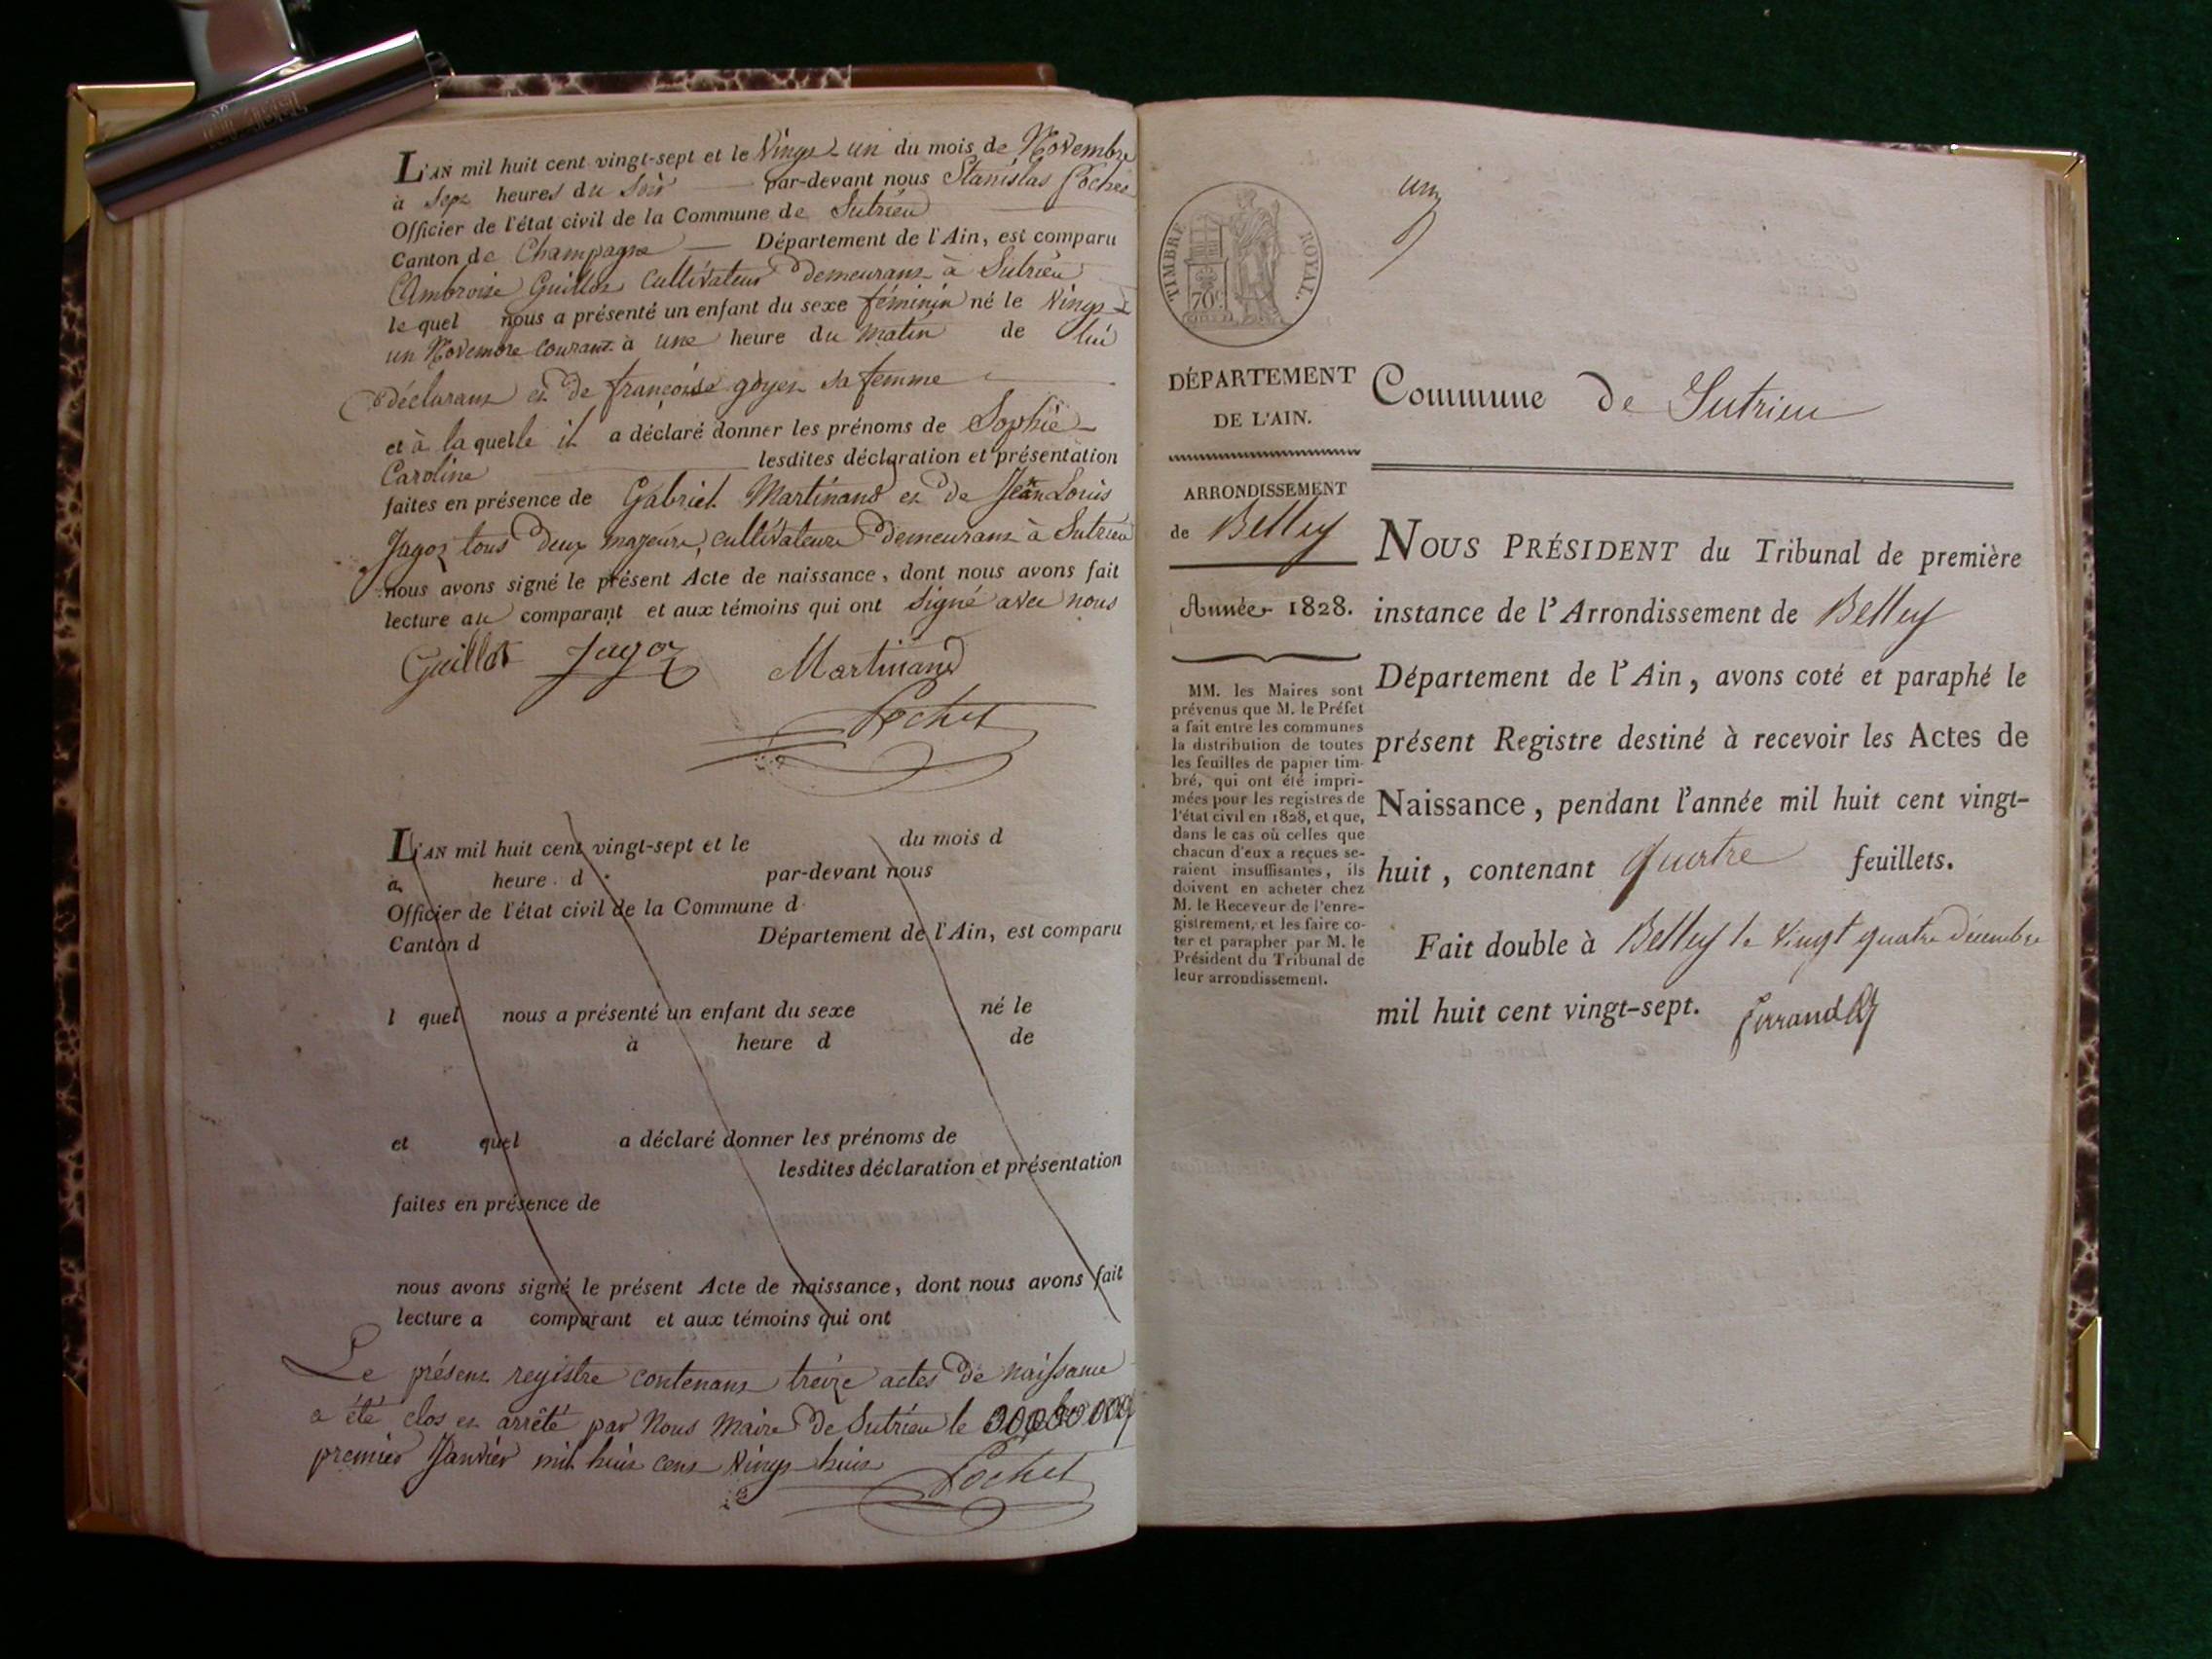 L'AN mil huit cent vingt-sept et le vingt-un du mois de Novembre
à sept heures du soir par-devant nous Stanislas
Officier de l'état civil de la Commune de Sutrieu
Canton de Champagne Département de l'Ain, est comparu
Ambroise Guillot cultivateur demeurant à Sutrieu
le quel nous a présenté un enfant du sexe féminin né le vingt-
un Novembre courant à une heure du matin de lui
déclarant et de françoise goyet sa femme
et à la quelle il a déclaré donner les prénoms de Sophie
Caroline lesdites déclaration et présentation
faites en présence de Gabriel Martinand et de Jean Louis
Jagot tous deux majeurs, cultivateurs demeurant à Sutrieu
nous avons signé le présent Acte de naissance, dont nous avons fait
lecture au comparant et aux témoins qui ont signé avec nous
Guillot Jagot Martinand
L'AN mil huit cent vingt-sept et le du mois d
à heure d par-devant nous
Officier de l'état civil de la Commune d
Canton d Département de l'Ain, est comparu
l quel nous a présenté un enfant du sexe né le
à heure d de
et quel a déclaré donner les prénoms de
lesdites déclaration et présentation
faites en présence de
nous avons signé le présent Acte de naissance, dont nous avons fait
lecture a comparant et aux témoins qui ont
Le présent registre contenant treize actes de naissance
a été clos et arrêté par Nous Maire de Sutrieu le
premier Janvier mil huit cent vingt huit
un
TIMBRE ROYAL.
70c
DÉPARTEMENT
DE L'AIN.
ARRONDISSEMENT
de Belley
Année 1828.
MM. les Maires sont
prévenus que M. le Préfet
a fait entre les communes
la distribution de toutes
les feuilles de papier tim-
bré, qui ont été impri-
mées pour les registres de
l'état civil en 1828, et que,
dans le cas où celles que
chacun d'eux a reçues se-
raient insuffisantes, ils
doivent en acheter chez
M. le Receveur de l'enre-
gistrement, et les faire co-
ter et parapher par M. le
Président du Tribunal de
leur arrondissement.
Commune de Sutrieu
NOUS PRÉSIDENT du Tribunal de première
instance de l'Arrondissement de Belley
Département de l'Ain, avons coté et paraphé le
présent Registre destiné à recevoir les Actes de
Naissance, pendant l'année mil huit cent vingt-
huit, contenant quatre feuillets.
Fait double à Belley le vingt quatre décembre
mil huit cent vingt-sept.